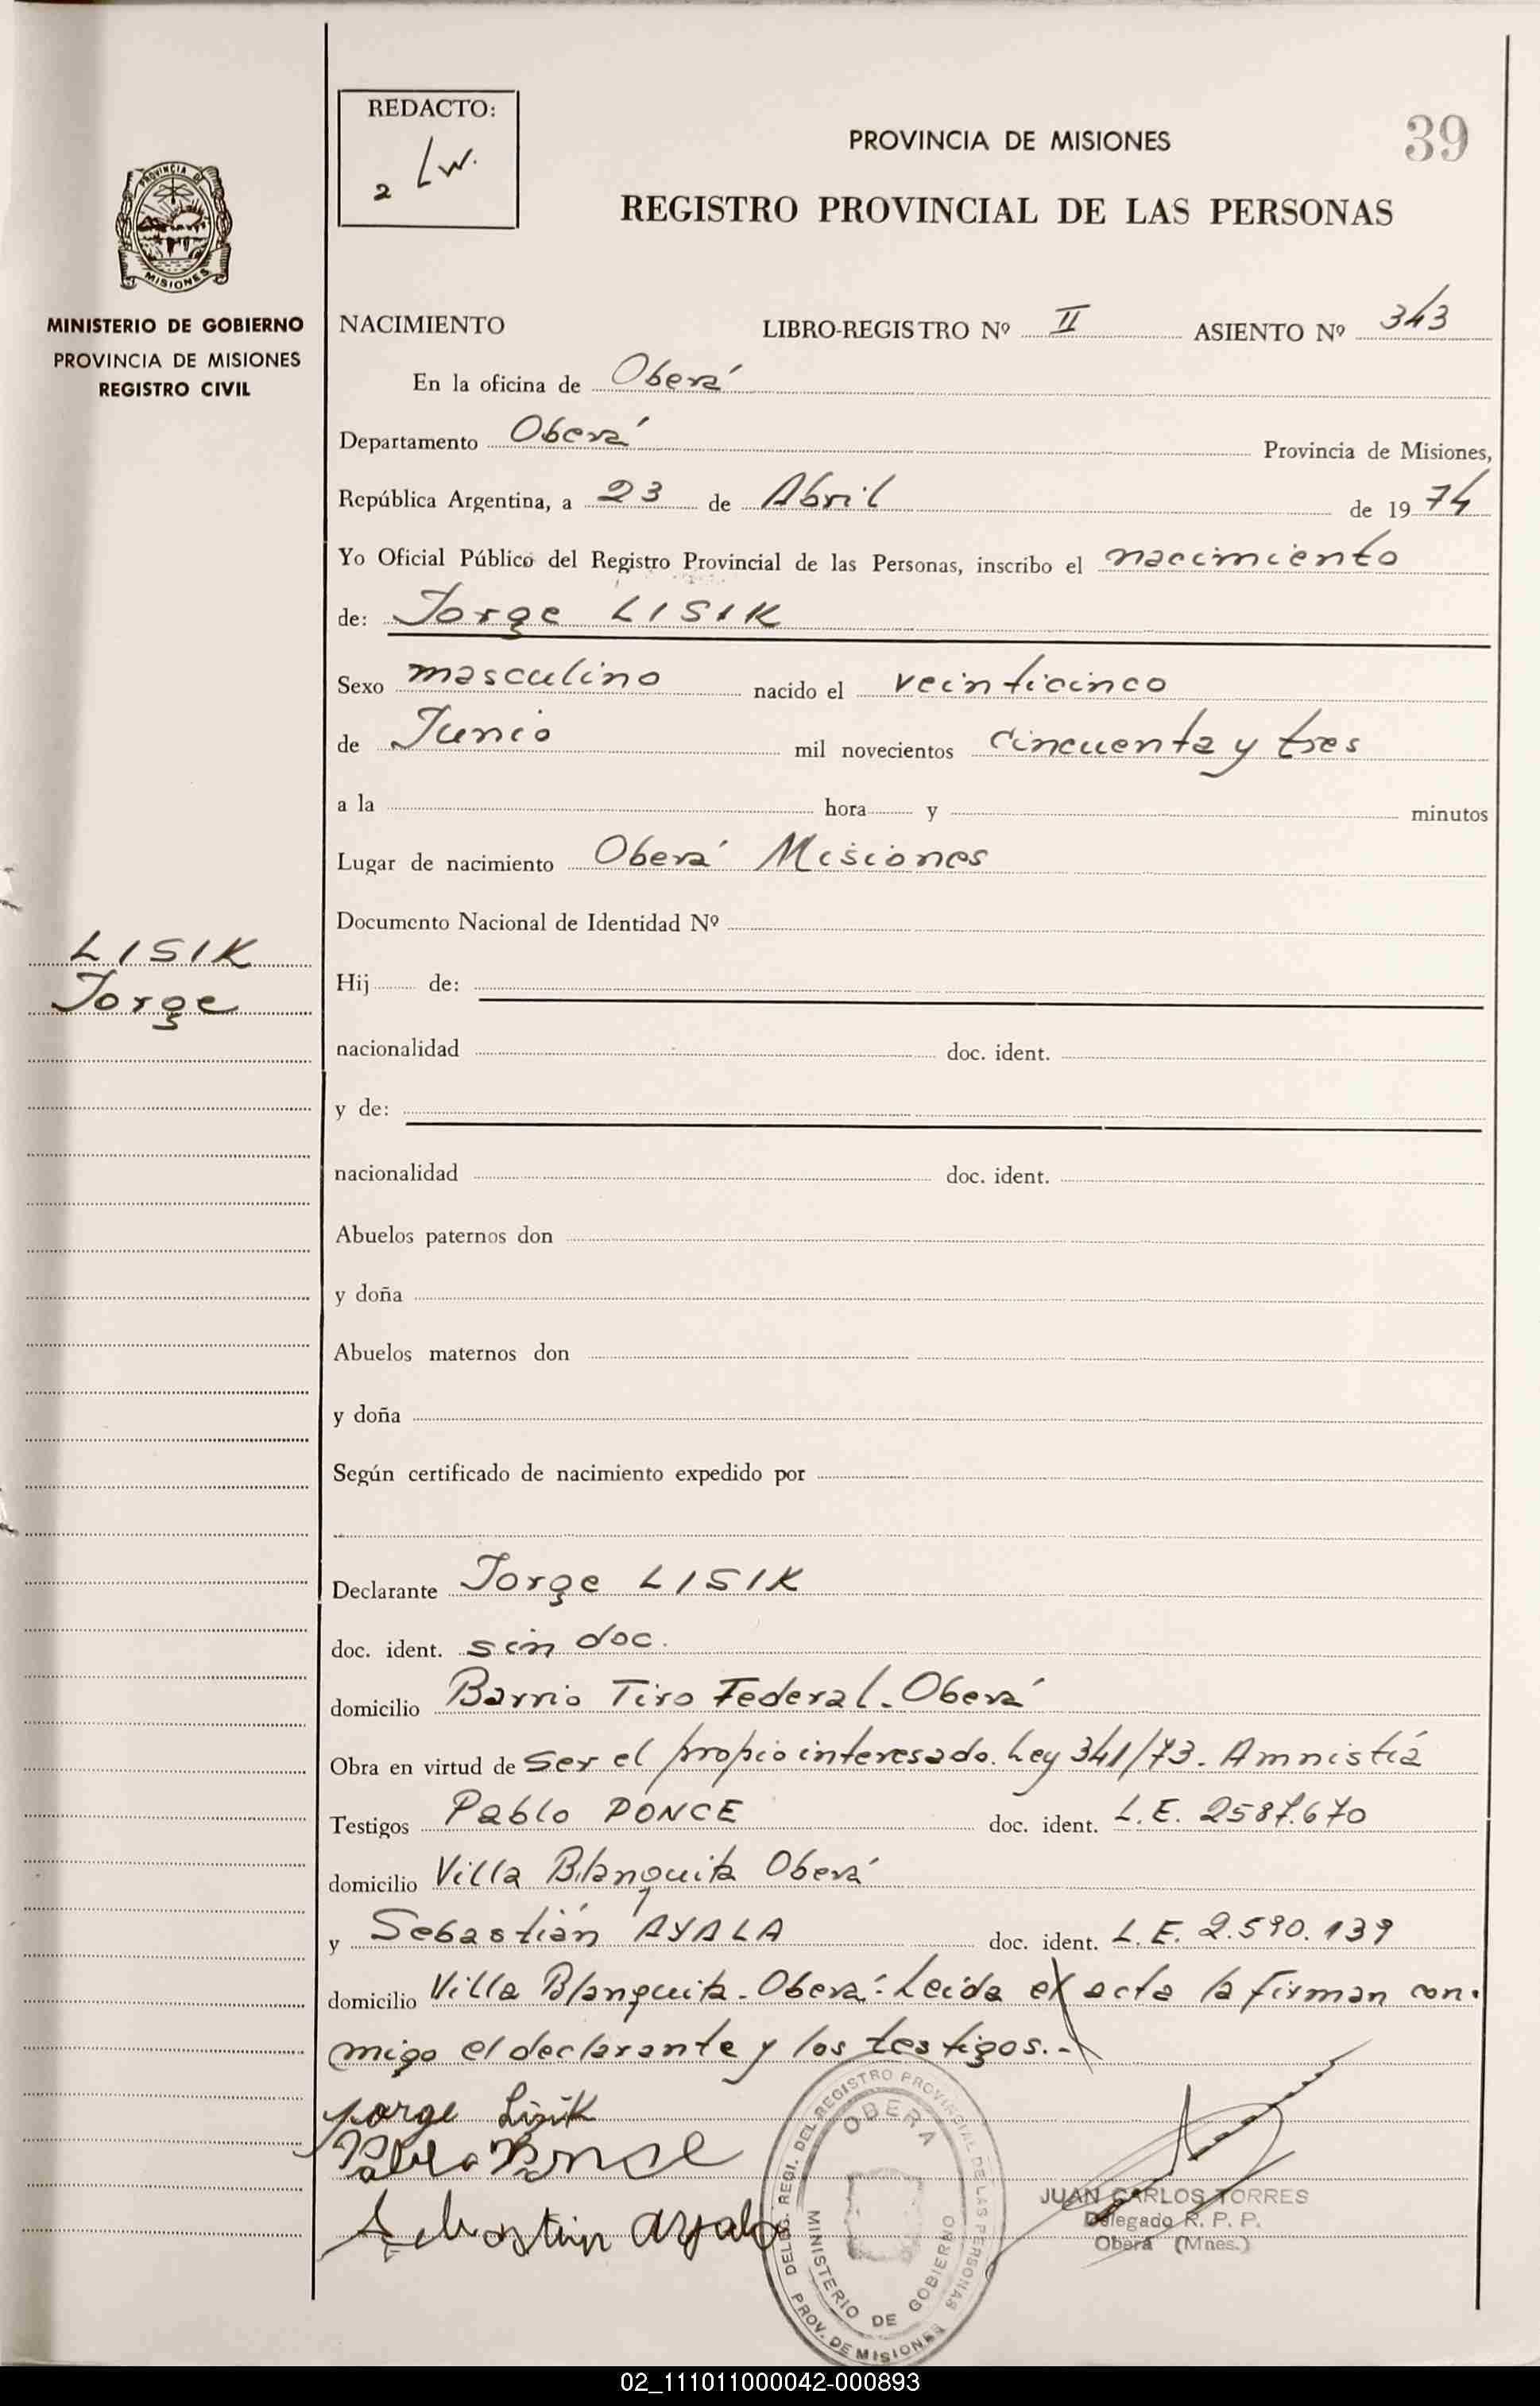 REDACTO:
2 Lw.
39
PROVINCIA DE MISIONES
REGISTRO PROVINCIAL DE LAS PERSONAS
PROVINCIA DE
MISIONES
MINISTERIO DE GOBIERNO
PROVINCIA DE MISIONES
REGISTRO CIVIL
NACIMIENTO LIBRO-REGISTRO Nº II ASIENTO Nº 343
En la oficina de Oberá
Departamento Oberá Provincia de Misiones,
República Argentina, a 23 de Abril de 1974
Yo Oficial Público del Registro Provincial de las Personas, inscribo el nacimiento
de: Jorge LISIK
Sexo masculino nacido el veinticinco
de Junio mil novecientos cincuenta y tres
a la hora y minutos
Lugar de nacimiento Oberá Misiones
Documento Nacional de Identidad Nº
LISIK
Jorge
Hij de:
nacionalidad doc. ident.
y de:
nacionalidad doc. ident.
Abuelos paternos don
y doña
Abuelos maternos don
y doña
Según certificado de nacimiento expedido por
Declarante Jorge LISIK
doc. ident. sin doc.
domicilio Barrio Tiro Federal. Oberá
Obra en virtud de ser el propio interesado. Ley 341/73. Amnistía
Testigos Pablo PONCE doc. ident. L.E. 2587.670
domicilio Villa Blanquita Oberá
y Sebastián AYALA doc. ident. L.E. 2.590.139
domicilio Villa Blanquita. Oberá: Leída el acta la firman con-
migo el declarante y los testigos.-
Jorge Lisik
Pablo Ponce
Sebastian Ayala
DELEG. REGI. DEL REGISTRO PROVINCIAL DE LAS PERSONAS
OBERA
MINISTERIO DE GOBIERNO
PROV. DE MISIONES
JUAN CARLOS TORRES
Delegado R. P. P.
Oberá (Mnes.)
02_111011000042-000893